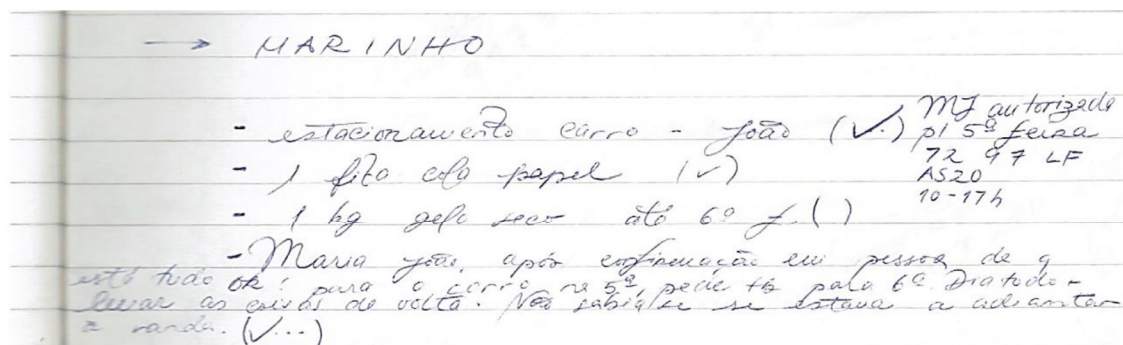 → MARINHO
- estacionamento carro - João (✓.)
MJ autorizada
p/ 5ª feira
72 97 LF
AS20
10-17h
- 1 fita cola papel (✓)
- 1 kg gelo seco até 6º f. ( )
- Maria João, após confirmação em pessoa de q
está tudo ok: para o carro na 5ª, pede tb para 6ª. Dia todo -
levar as coisas de volta. Não sabia se se estava a adiantar
(✓...)